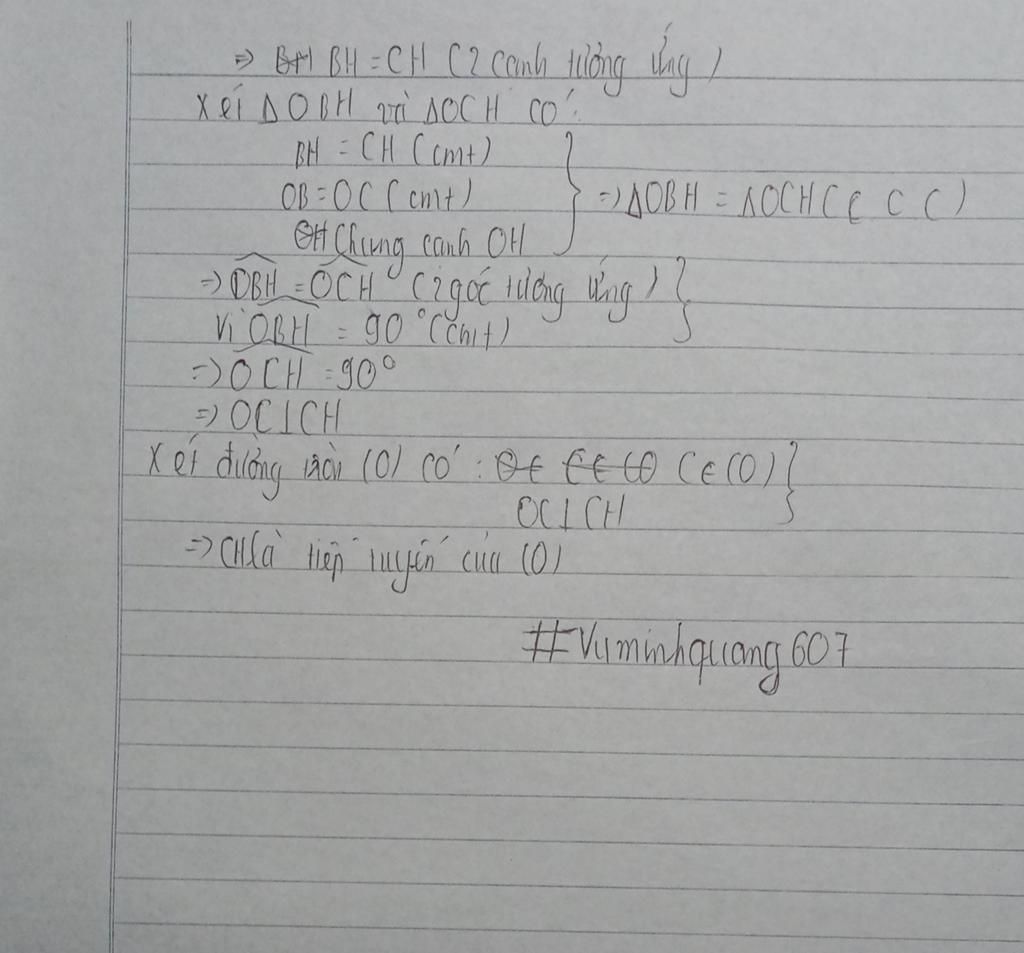 ⇒ BH = CH (2 cạnh tương ứng)
Xét ΔOBH và ΔOCH có:
BH = CH (cmt)
OB = OC (cmt) } ⇒ ΔOBH = ΔOCH (c c c)
Chung cạnh OH
⇒ OBH = OCH (2 góc tương ứng) }
Vì OBH = 90° (cmt)
⇒ OCH = 90°
⇒ OC⊥CH
Xét đường tròn (O) có: C ∈ (O) }
OC⊥CH
⇒ CH là tiếp tuyến của (O)
#Vuminhquang607